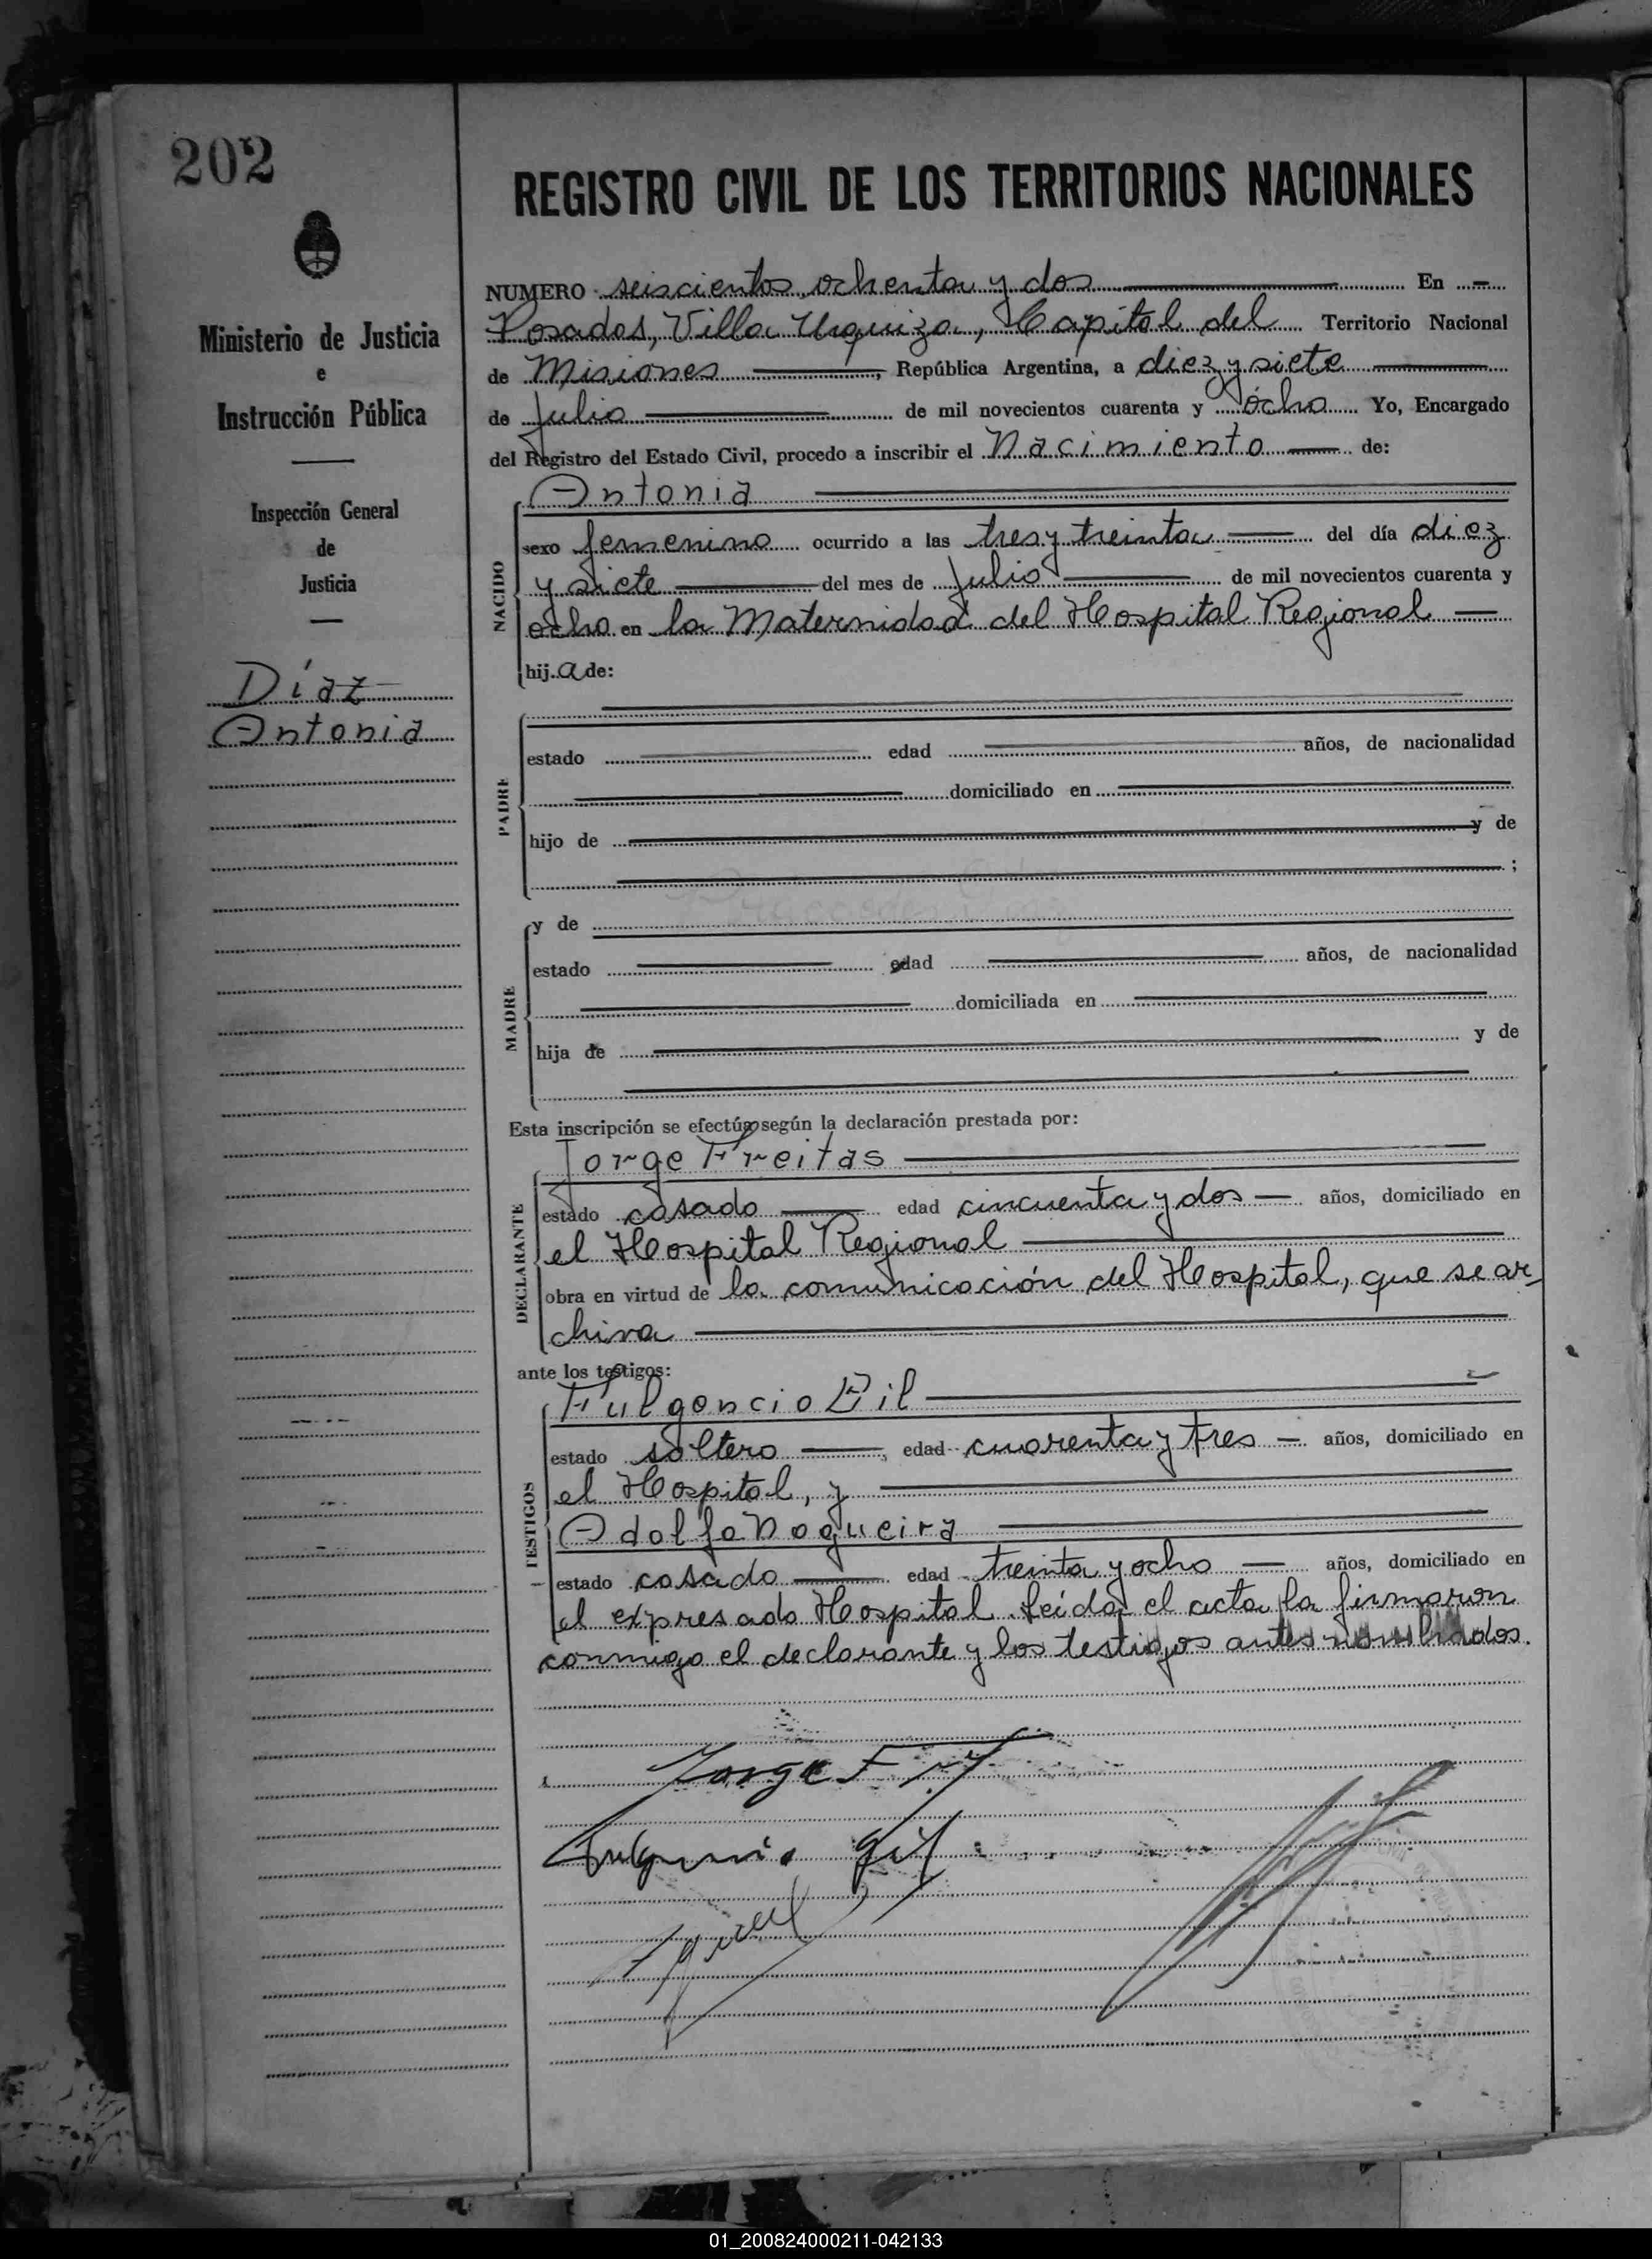 202
REGISTRO CIVIL DE LOS TERRITORIOS NACIONALES
Ministerio de Justicia
e
Instrucción Pública
Inspección General
de
Justicia
Díaz
Antonia
NUMERO seiscientos ochenta y dos En
Posadas, Villa Urquiza, Capital del Territorio Nacional
de Misiones, República Argentina, a diez y siete
de Julio de mil novecientos cuarenta y ocho Yo, Encargado
del Registro del Estado Civil, procedo a inscribir el Nacimiento de:
NACIDO
Antonia
sexo femenino ocurrido a las tres y treinta del día diez
y siete del mes de Julio de mil novecientos cuarenta y
ocho en la Maternidad del Hospital Regional
hija de:
PADRE
estado edad años, de nacionalidad
domiciliado en
hijo de y de
;
MADRE
y de
estado edad años, de nacionalidad
domiciliada en
hija de y de
Esta inscripción se efectúa según la declaración prestada por:
DECLARANTE
Jorge Freitas
estado casado edad cincuenta y dos años, domiciliado en
el Hospital Regional
obra en virtud de la comunicación del Hospital, que se ar-
chiva
ante los testigos:
TESTIGOS
Fulgencio Gil
estado soltero, edad cuarenta y tres años, domiciliado en
el Hospital, y
Adolfo Nogueira
estado casado edad treinta y ocho años, domiciliado en
el expresado Hospital. Leída el acta la firmaron
conmigo el declarante y los testigos antes nombrados.
Jorge F
Fulgencio Gil
01_200824000211-042133